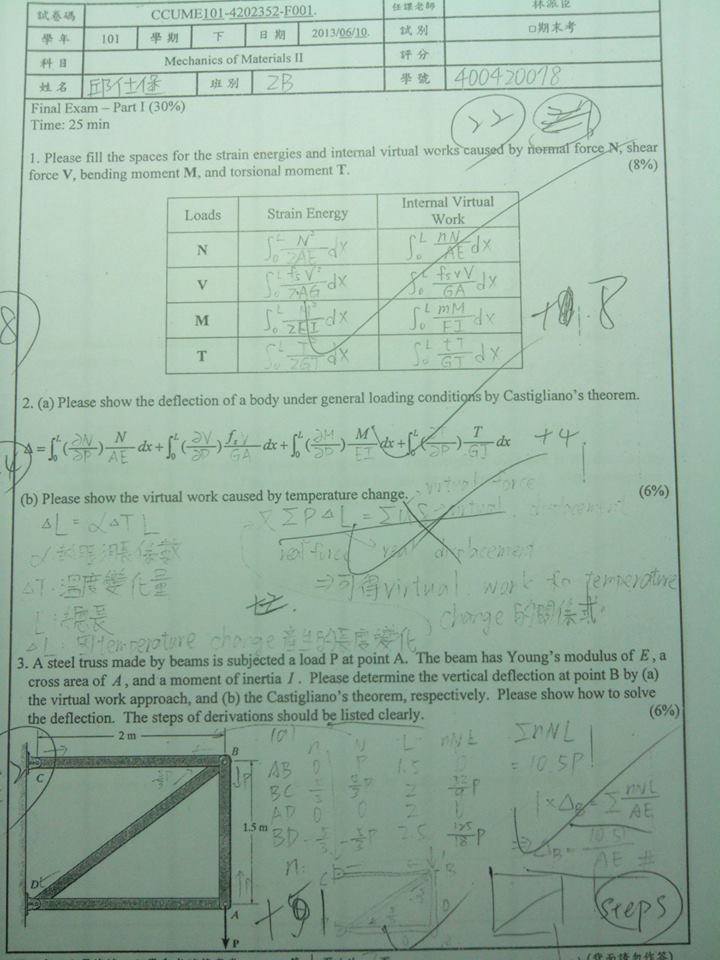 試卷碼 CCUME101-4202352-F001. 任課老師
學年 101 學期 下 日期 2013/06/10. 試別 □期末考
科目 Mechanics of Materials II 評分
姓名 班別 2B 學號 400420078
Final Exam – Part I (30%)
Time: 25 min
22
1. Please fill the spaces for the strain energies and internal virtual works caused by normal force N, shear
force V, bending moment M, and torsional moment T. (8%)
Loads Strain Energy Internal Virtual Work
N ∫₀ᴸ N²/2AE dx ∫₀ᴸ nN/AE dx
V ∫₀ᴸ fsV²/2AG dx ∫₀ᴸ fsvV/GA dx
M ∫₀ᴸ M²/2EI dx ∫₀ᴸ mM/EI dx
T ∫₀ᴸ T²/2GT dx ∫₀ᴸ tT/GT dx
8
2. (a) Please show the deflection of a body under general loading conditions by Castigliano's theorem.
Δ = ∫₀ᴸ (∂N/∂P) N/AE dx + ∫₀ᴸ (∂V/∂P) fsV/GA dx + ∫₀ᴸ (∂M/∂P) M/EI dx + ∫₀ᴸ (∂T/∂P) T/GJ dx +4
(b) Please show the virtual work caused by temperature change. (6%)
virtual force
ΔL = αΔTL
virtual displacement
real force real displacement
ΔT:溫度變化量 ⇒可得virtual work for temperature
L:總長 +2. change的關係式。
ΔL:因temperature change產生的長度變化
3. A steel truss made by beams is subjected a load P at point A. The beam has Young's modulus of E, a
cross area of A, and a moment of inertia I. Please determine the vertical deflection at point B by (a)
the virtual work approach, and (b) the Castigliano's theorem, respectively. Please show how to solve
the deflection. The steps of derivations should be listed clearly. (6%)
2 m
C
B
1.5 m
D
A
P
(a)
n N L nNL
AB 0 P 1.5 0
BC 2
AD 0 0 2 0
BD 2.5 125/18 P
ΣnNL
= 10.5P
1×ΔB = Σ nNL/AE
n:
C
B
D
steps